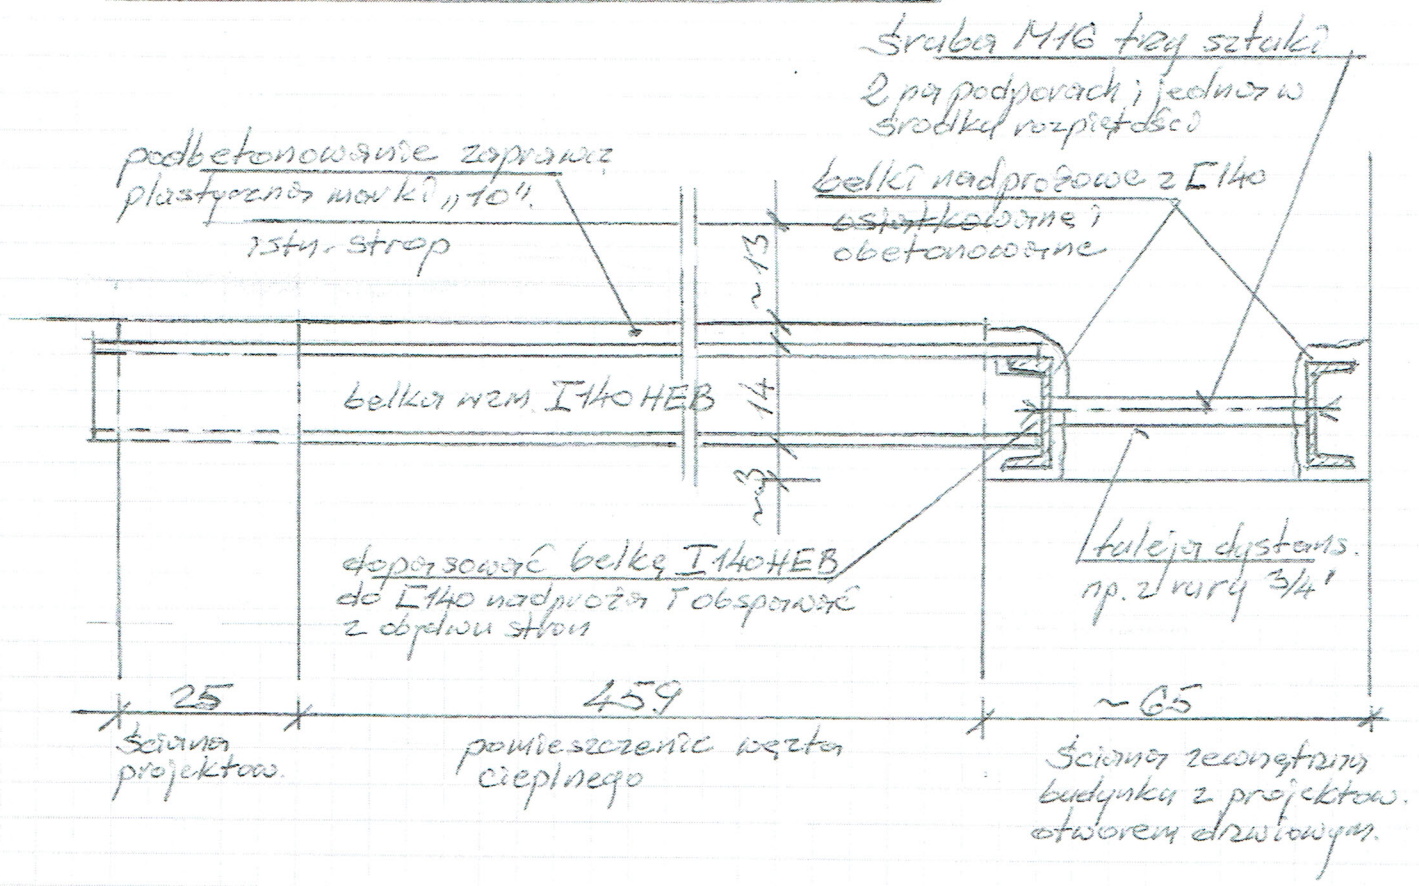 śruba M16 trzy sztuki
2 na podporach i jedna w
środku rozpiętości
podbetonowanie zaprawą
plastyczną marki „10".
istn. strop
belki nadprożowe z [140
osiatkowane i
obetonowane
~13
belka wzm. I140HEB
14
~3
dopasować belkę I140HEB
do [140 nadproża i obspawać
z obydwu stron
tuleja dystans.
np. z rury 3/4'
25
459
~65
ściana
projektow.
pomieszczenie węzła
cieplnego
ściana zewnętrzna
budynku z projektow.
otworem drzwiowym.